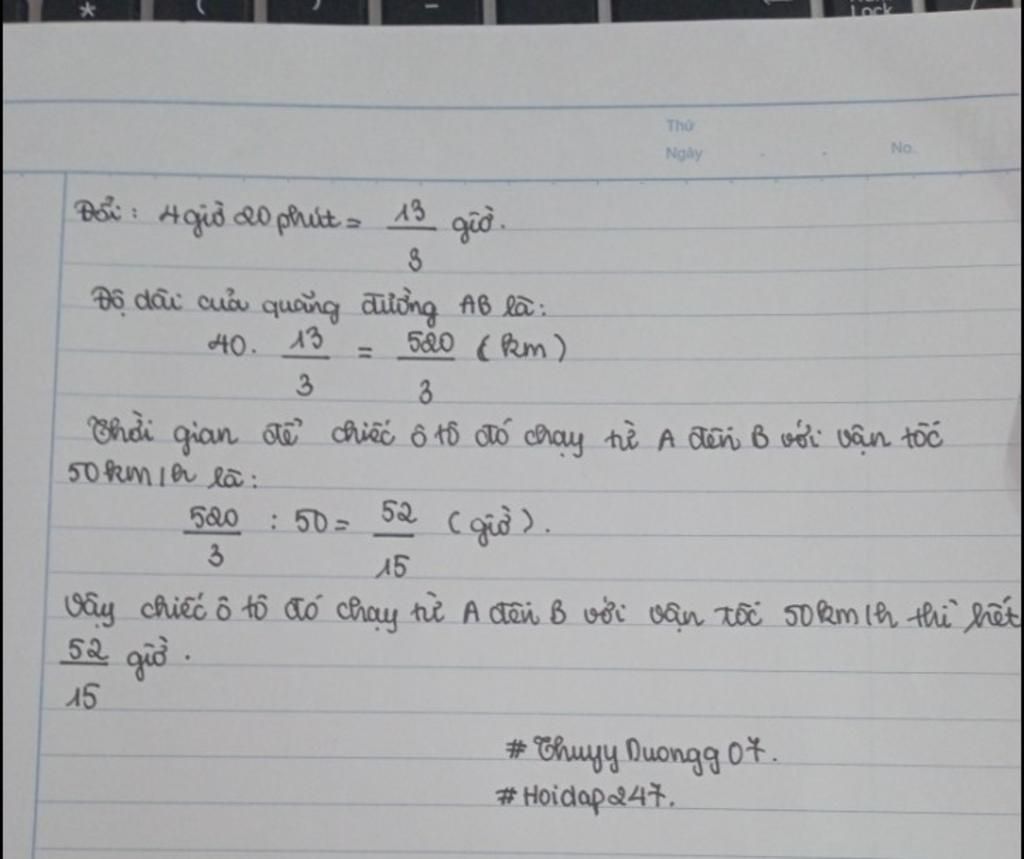 *
(
)
–
Lock
Thứ
Ngày . . No.
Đổi: 4 giờ 20 phút = 13/3 giờ.
Độ dài của quãng đường AB là:
40. 13/3 = 520/3 (km)
Thời gian để chiếc ô tô đó chạy từ A đến B với vận tốc
50km/h là:
520/3 : 50 = 52/15 (giờ).
Vậy chiếc ô tô đó chạy từ A đến B với vận tốc 50km/h thì hết
52/15 giờ.
#ThuyyDuongg07.
#Hoidap247.